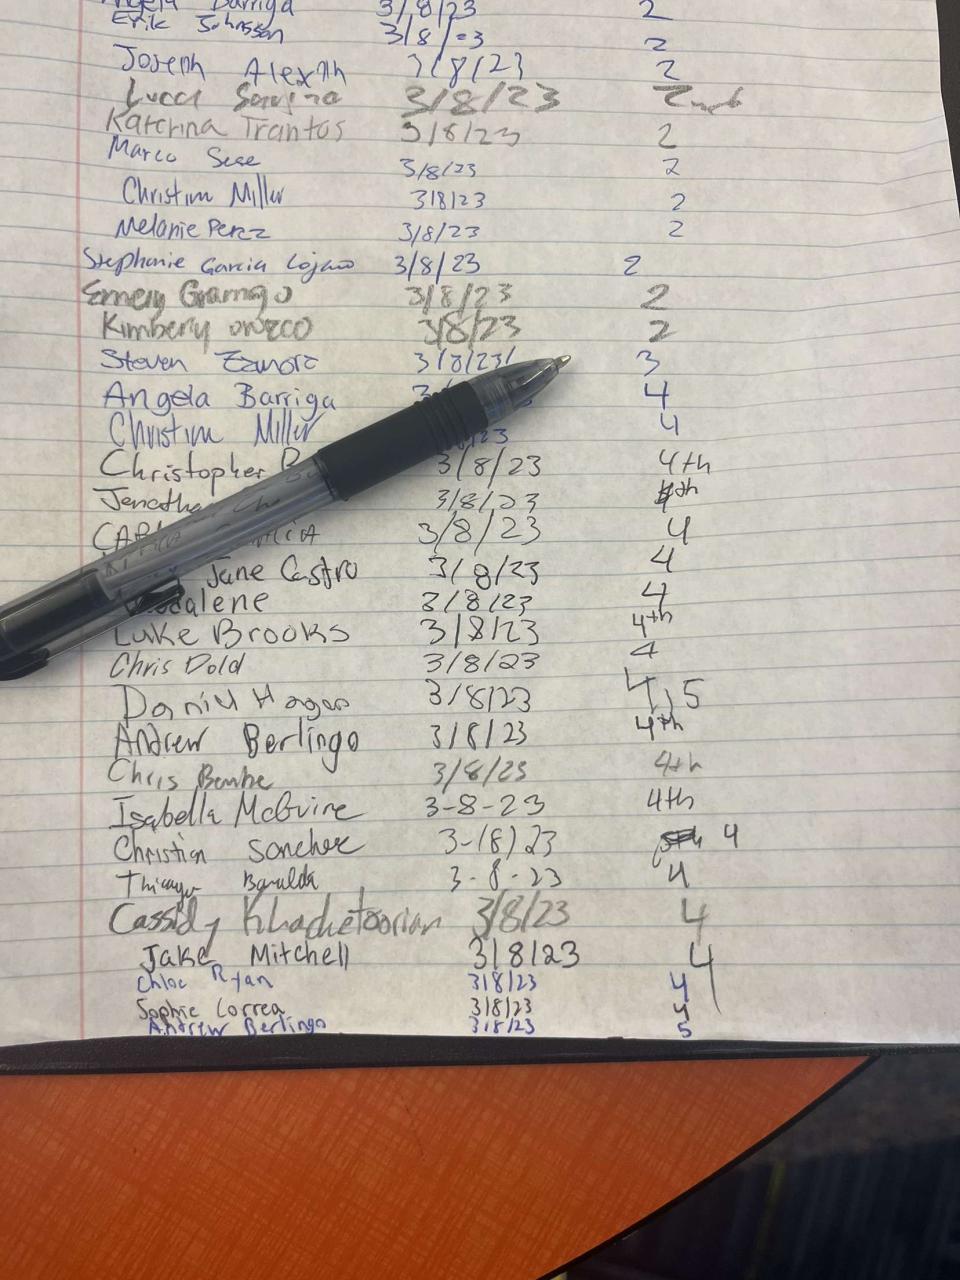 Angela Barriga 3/8/23 2
Erik Johnson 3/8/ 2
Joseph 3/8/23 2
Lucca 3/8/23 2nd
Katerina Trantos 3/8/23 2
Marco 3/8/23 2
Christina Miller 3/8/23 2
Melanie Perez 3/8/23 2
Stephanie Garcia Lojano 3/8/23 2
Emery 3/8/23 2
Kimbery orozco 3/8/23 2
Steven Zamora 3/8/23/ 3
Angela Barriga 3 4
Christina Miller /23 4
Christopher B 3/8/23 4th
3/8/23 4th
3/8/23 4
Jane Castro 3/8/23 4
3/8/23 4
Luke Brooks 3/8/23 4th
Chris Dold 3/8/23 4
Daniel Hagan 3/8/23 4,5
Andrew Berlingo 3/8/23 4th
Chris 3/8/23 4th
Isabella McGuire 3-8-23 4th
Christian Sanchez 3-(8)23 4
3-8-23 4
Cassidy Khachetoorian 3/8/23 4
Jake Mitchell 3/8/23 4
Chloe Ryan 3/8/23 4
Sophie Correa 3/8/23 4
Andrew Berlingo 3/8/23 5